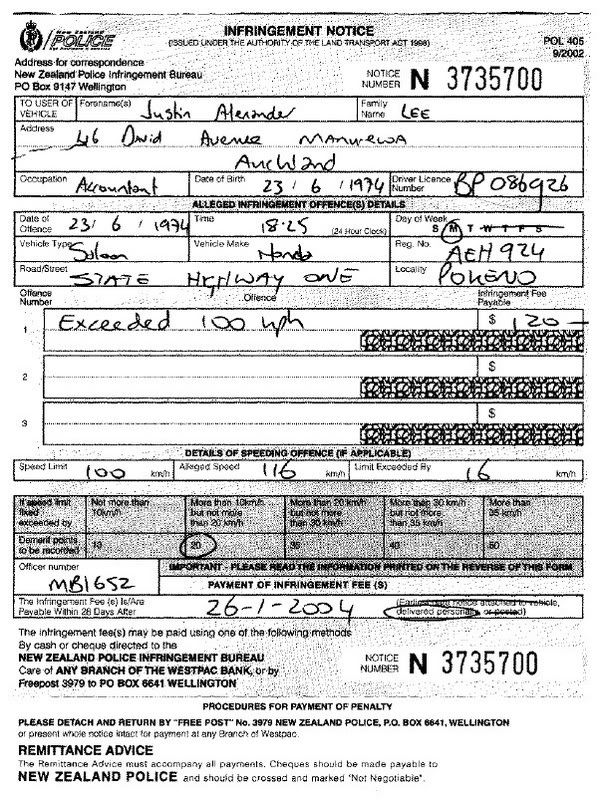 NEW ZEALAND
POLICE
INFRINGEMENT NOTICE
(ISSUED UNDER THE AUTHORITY OF THE LAND TRANSPORT ACT 1998)
POL 405
9/2002
Address for correspondence
New Zealand Police Infringement Bureau
PO Box 9147 Wellington
NOTICE NUMBER N 3735700
TO USER OF VEHICLE Forename(s) Justin Alexander Family Name LEE
Address 46 David Avenue MANUREWA
Auckland
Occupation Accountant Date of Birth 23 / 6 / 1974 Driver Licence Number BP 086926
ALLEGED INFRINGEMENT OFFENCE(S) DETAILS
Date of Offence 23 / 6 / 1974 Time 18:25 (24 Hour Clock) Day of Week S M T W T F S
Vehicle Type Saloon Vehicle Make Honda Reg. No. AEH 924
Road/Street STATE HIGHWAY ONE Locality POKENO
Offence Number Offence Infringement Fee Payable
1 Exceeded 100 kph $ 120 -
2 $
3 $
DETAILS OF SPEEDING OFFENCE (IF APPLICABLE)
Speed Limit 100 km/h Alleged Speed 116 km/h Limit Exceeded By 16 km/h
If speed limit fixed exceeded by Not more than 10km/h More than 10km/h but not more than 20 km/h More than 20 km/h but not more than 30 km/h More than 30 km/h but not more than 35 km/h More than 35 km/h
Demerit points to be recorded 20 35 40 50
Officer number MB1652
IMPORTANT - PLEASE READ THE INFORMATION PRINTED ON THE REVERSE OF THIS FORM
PAYMENT OF INFRINGEMENT FEE (S)
The Infringement Fee (s) Is/Are Payable Within 28 Days After 26-1-2004 (Earliest date notice attached to vehicle, delivered personally or posted)
The infringement fee(s) may be paid using one of the following methods
By cash or cheque directed to the
NEW ZEALAND POLICE INFRINGEMENT BUREAU
Care of ANY BRANCH OF THE WESTPAC BANK, or by
Freepost 3979 to PO BOX 6641 WELLINGTON
NOTICE NUMBER N 3735700
PROCEDURES FOR PAYMENT OF PENALTY
PLEASE DETACH AND RETURN BY "FREE POST" No. 3979 NEW ZEALAND POLICE, P.O. BOX 6641, WELLINGTON
or present whole notice intact for payment at any Branch of Westpac.
REMITTANCE ADVICE
The Remittance Advice must accompany all payments. Cheques should be made payable to
NEW ZEALAND POLICE and should be crossed and marked "Not Negotiable".